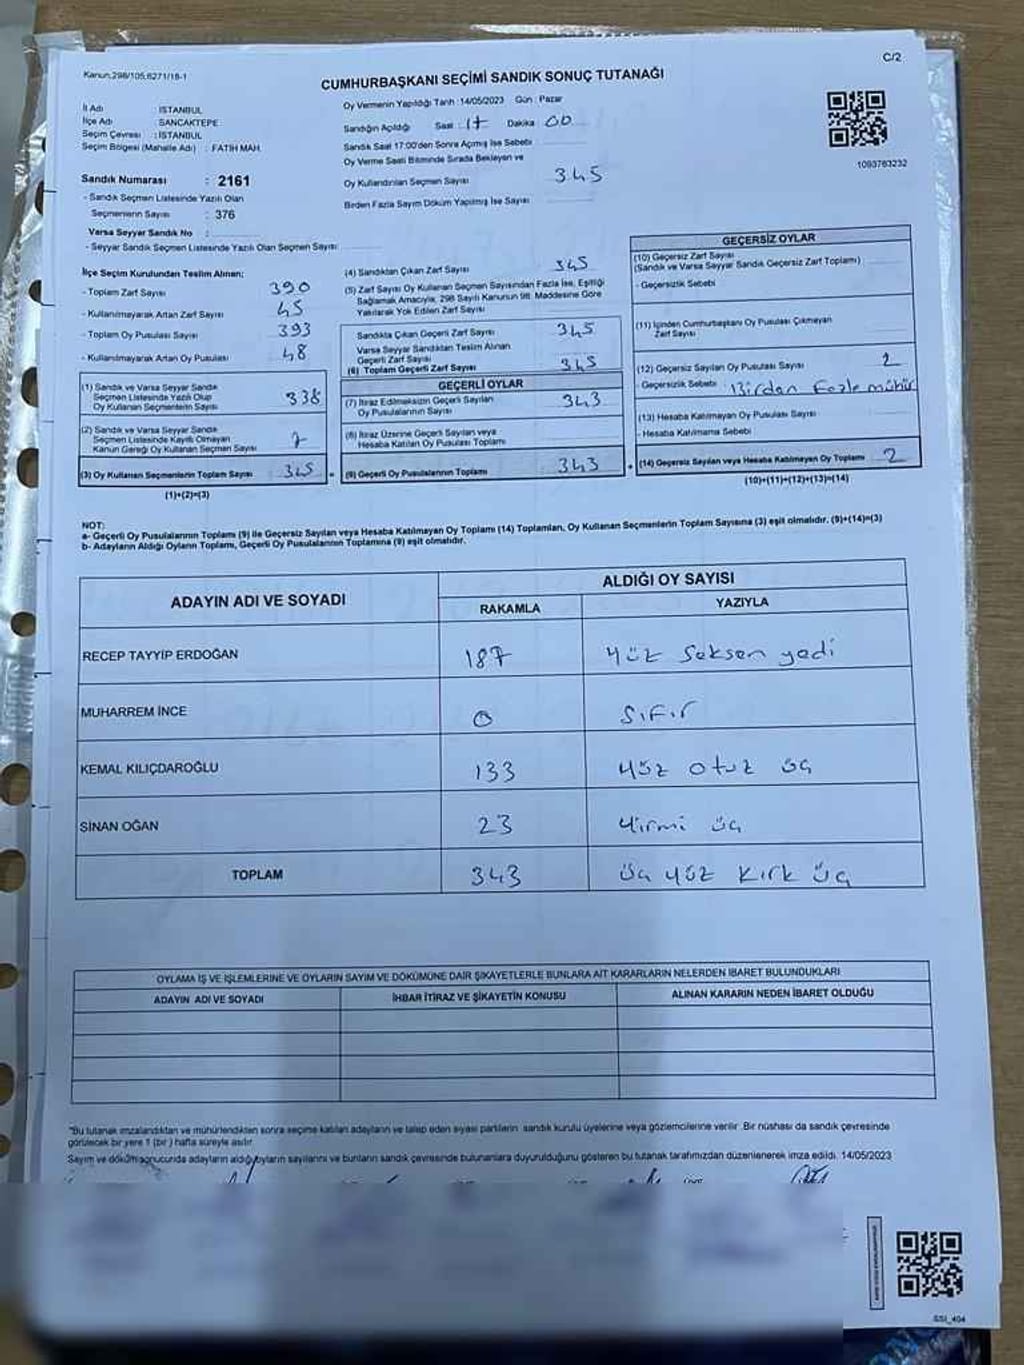 Kanun:298/105,6271/18-1
C/2
CUMHURBAŞKANI SEÇİMİ SANDIK SONUÇ TUTANAĞI
İl Adı : İSTANBUL
İlçe Adı : SANCAKTEPE
Seçim Çevresi : İSTANBUL
Seçim Bölgesi (Mahalle Adı) : FATİH MAH.
Oy Vermenin Yapıldığı Tarih :14/05/2023 Gün : Pazar
Sandığın Açıldığı Saat : 17 Dakika : 00
Sandık Saat 17:00'den Sonra Açılmış İse Sebebi
Oy Verme Saati Bitiminde Sırada Bekleyen ve
Oy Kullandırılan Seçmen Sayısı 345
Birden Fazla Sayım Döküm Yapılmış İse Sayısı
1093763232
Sandık Numarası : 2161
- Sandık Seçmen Listesinde Yazılı Olan
Seçmenlerin Sayısı : 376
Varsa Seyyar Sandık No :
- Seyyar Sandık Seçmen Listesinde Yazılı Olan Seçmen Sayısı
İlçe Seçim Kurulundan Teslim Alınan;
- Toplam Zarf Sayısı 390
- Kullanılmayarak Artan Zarf Sayısı 45
- Toplam Oy Pusulası Sayısı 393
- Kullanılmayarak Artan Oy Pusulası 48
(1) Sandık ve Varsa Seyyar Sandık
Seçmen Listesinde Yazılı Olup
Oy Kullanan Seçmenlerin Sayısı 338
(2) Sandık ve Varsa Seyyar Sandık
Seçmen Listesinde Kayıtlı Olmayan
Kanun Gereği Oy Kullanan Seçmen Sayısı 7
(3) Oy Kullanan Seçmenlerin Toplam Sayısı 345
(1)+(2)=(3)
(4) Sandıktan Çıkan Zarf Sayısı 345
(5) Zarf Sayısı Oy Kullanan Seçmen Sayısından Fazla İse, Eşitliği
Sağlamak Amacıyla, 298 Sayılı Kanunun 98. Maddesine Göre
Yakılarak Yok Edilen Zarf Sayısı
Sandıkta Çıkan Geçerli Zarf Sayısı 345
Varsa Seyyar Sandıktan Teslim Alınan
Geçerli Zarf Sayısı
(6) Toplam Geçerli Zarf Sayısı 345
GEÇERLİ OYLAR
(7) İtiraz Edilmeksizin Geçerli Sayılan
Oy Pusulalarının Sayısı 343
(8) İtiraz Üzerine Geçerli Sayılan veya
Hesaba Katılan Oy Pusulası Toplamı
(9) Geçerli Oy Pusulalarının Toplamı 343
GEÇERSİZ OYLAR
(10) Geçersiz Zarf Sayısı
(Sandık ve Varsa Seyyar Sandık Geçersiz Zarf Toplamı)
- Geçersizlik Sebebi
(11) İçinden Cumhurbaşkanı Oy Pusulası Çıkmayan
Zarf Sayısı
(12) Geçersiz Sayılan Oy Pusulası Sayısı 2
- Geçersizlik Sebebi : Birden Fazla mühür
(13) Hesaba Katılmayan Oy Pusulası Sayısı
- Hesaba Katılmama Sebebi
(14) Geçersiz Sayılan veya Hesaba Katılmayan Oy Toplamı 2
(10)+(11)+(12)+(13)=(14)
NOT:
a- Geçerli Oy Pusulalarının Toplamı (9) ile Geçersiz Sayılan veya Hesaba Katılmayan Oy Toplamı (14) Toplamları, Oy Kullanan Seçmenlerin Toplam Sayısına (3) eşit olmalıdır. (9)+(14)=(3)
b- Adayların Aldığı Oyların Toplamı, Geçerli Oy Pusulalarının Toplamına (9) eşit olmalıdır.
ADAYIN ADI VE SOYADI
ALDIĞI OY SAYISI
RAKAMLA YAZIYLA
RECEP TAYYİP ERDOĞAN 187 yüz seksen yedi
MUHARREM İNCE 0 sıfır
KEMAL KILIÇDAROĞLU 133 yüz otuz üç
SİNAN OĞAN 23 yirmi üç
TOPLAM 343 üç yüz kırk üç
OYLAMA İŞ VE İŞLEMLERİNE VE OYLARIN SAYIM VE DÖKÜMÜNE DAİR ŞİKAYETLERLE BUNLARA AİT KARARLARIN NELERDEN İBARET BULUNDUKLARI
ADAYIN ADI VE SOYADI İHBAR İTİRAZ VE ŞİKAYETİN KONUSU ALINAN KARARIN NEDEN İBARET OLDUĞU
*Bu tutanak imzalandıktan ve mühürlendikten sonra seçime katılan adayların ve talep eden siyasi partilerin sandık kurulu üyelerine veya gözlemcilerine verilir. Bir nüshası da sandık çevresinde
görülecek bir yere 1 (bir) hafta süreyle asılır.
Sayım ve döküm sonucunda adayların aldığı oyların sayılarını ve bunların sandık çevresinde bulunanlara duyurulduğunu gösteren bu tutanak tarafımızdan düzenlenerek imza edildi. 14/05/2023
SSI_404